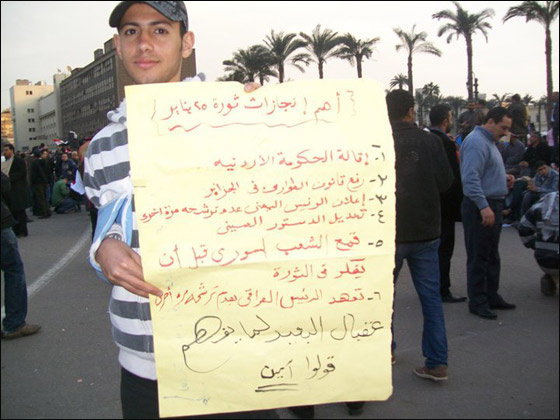 { أهم إنجازات ثورة ٢٥ يناير }
١- إقالة الحكومة الأردنية
٢- رفع قانون الطوارئ في الجزائر
٣- إعلان الرئيس اليمني عدم ترشيحه مرة أخرى
٤- تعديل الدستور الصيني
٥- قمع الشعب السوري قبل أن
يفكر في الثورة
٦- تعهد الرئيس العراقي بعدم ترشحه مرة أخرى
عقبال البعيد لما يفهم
قولوا آمين